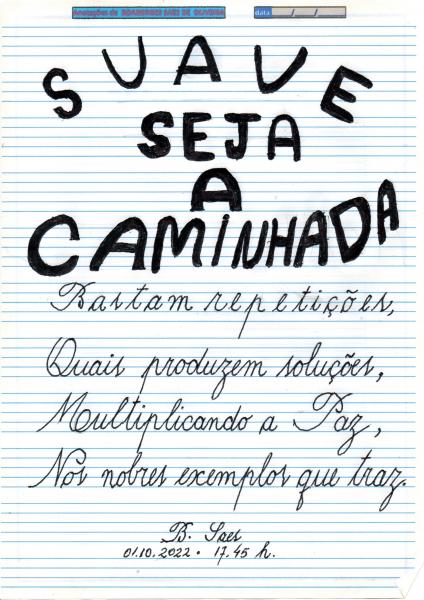 Anotações de BOANERGES SAES DE OLIVEIRA data / /
SUAVE
SEJA
A
CAMINHADA
Bastam repetições,
Quais produzem soluções,
Multiplicando a Paz,
Nos nobres exemplos que traz.
B. Saes
01.10.2022 • 17.45 h.